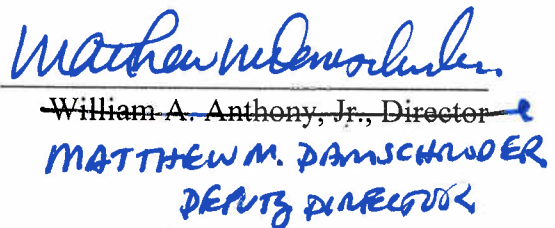 Matthew M Damschroder
William A. Anthony, Jr., Director
MATTHEW M. DAMSCHRODER
DEPUTY DIRECTOR